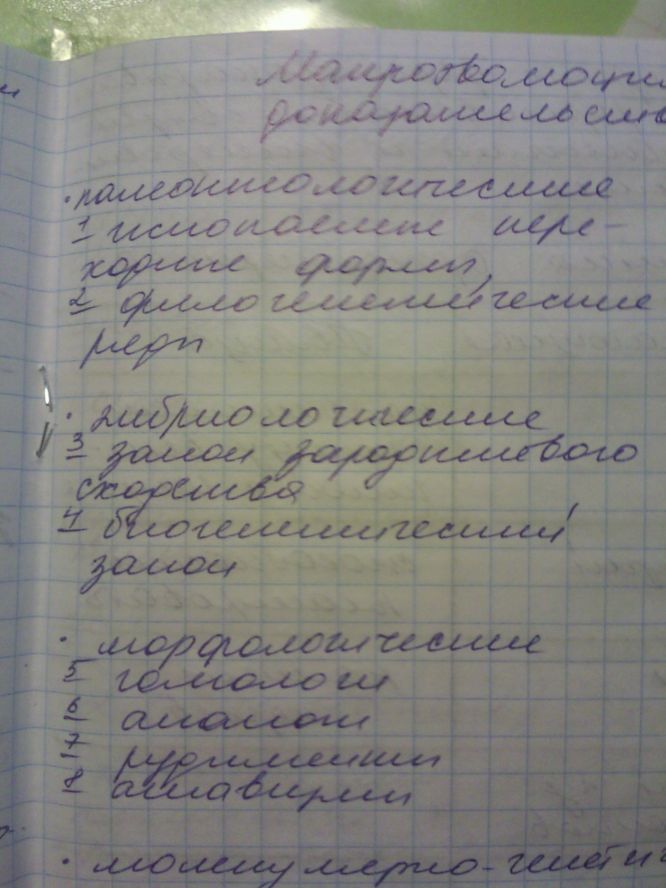 Макроэволюция
доказательств
· палеонтологические
1 ископаемые пере-
ходные формы,
2 филогенетические
ряды
· эмбриологические
3 закон зародышевого
сходства
4 биогенетический
закон
· морфологические
5 гомологи
6 аналоги
7 рудименты
8 атавизмы
· молекулярно-генетич